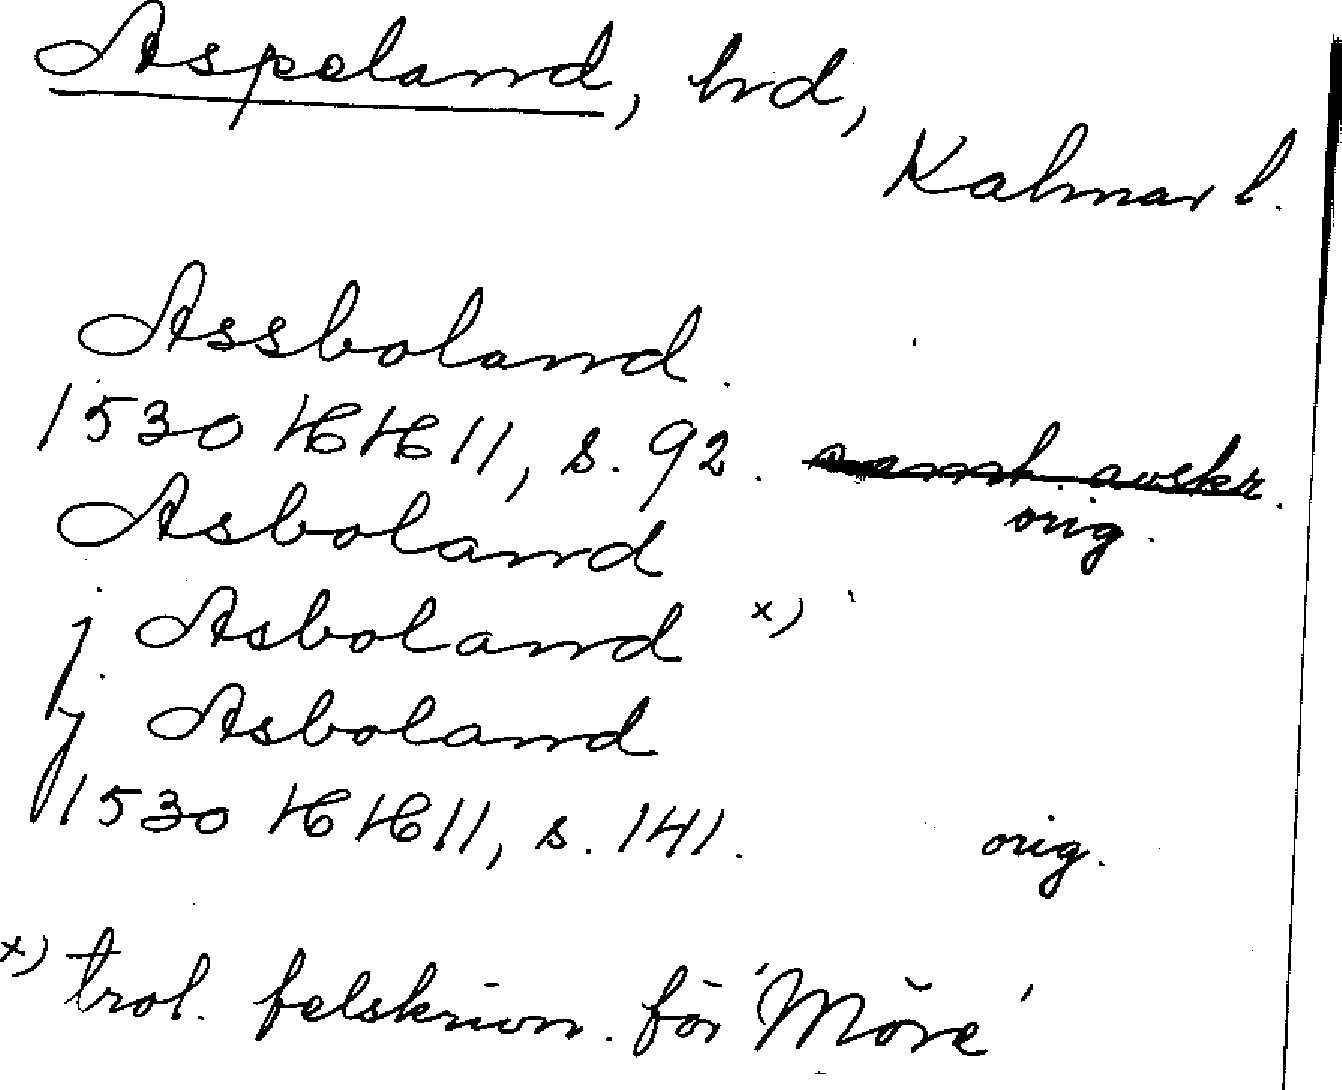 Aspeland, hrd,
Kalmar l.
Assboland.
1530 HH 11, s. 92. samt. avskr.
orig.
Asboland
j Asboland x)
j Asboland
1530 HH 11, s. 141. orig.
x) trol. felskrivn. för 'Möre'